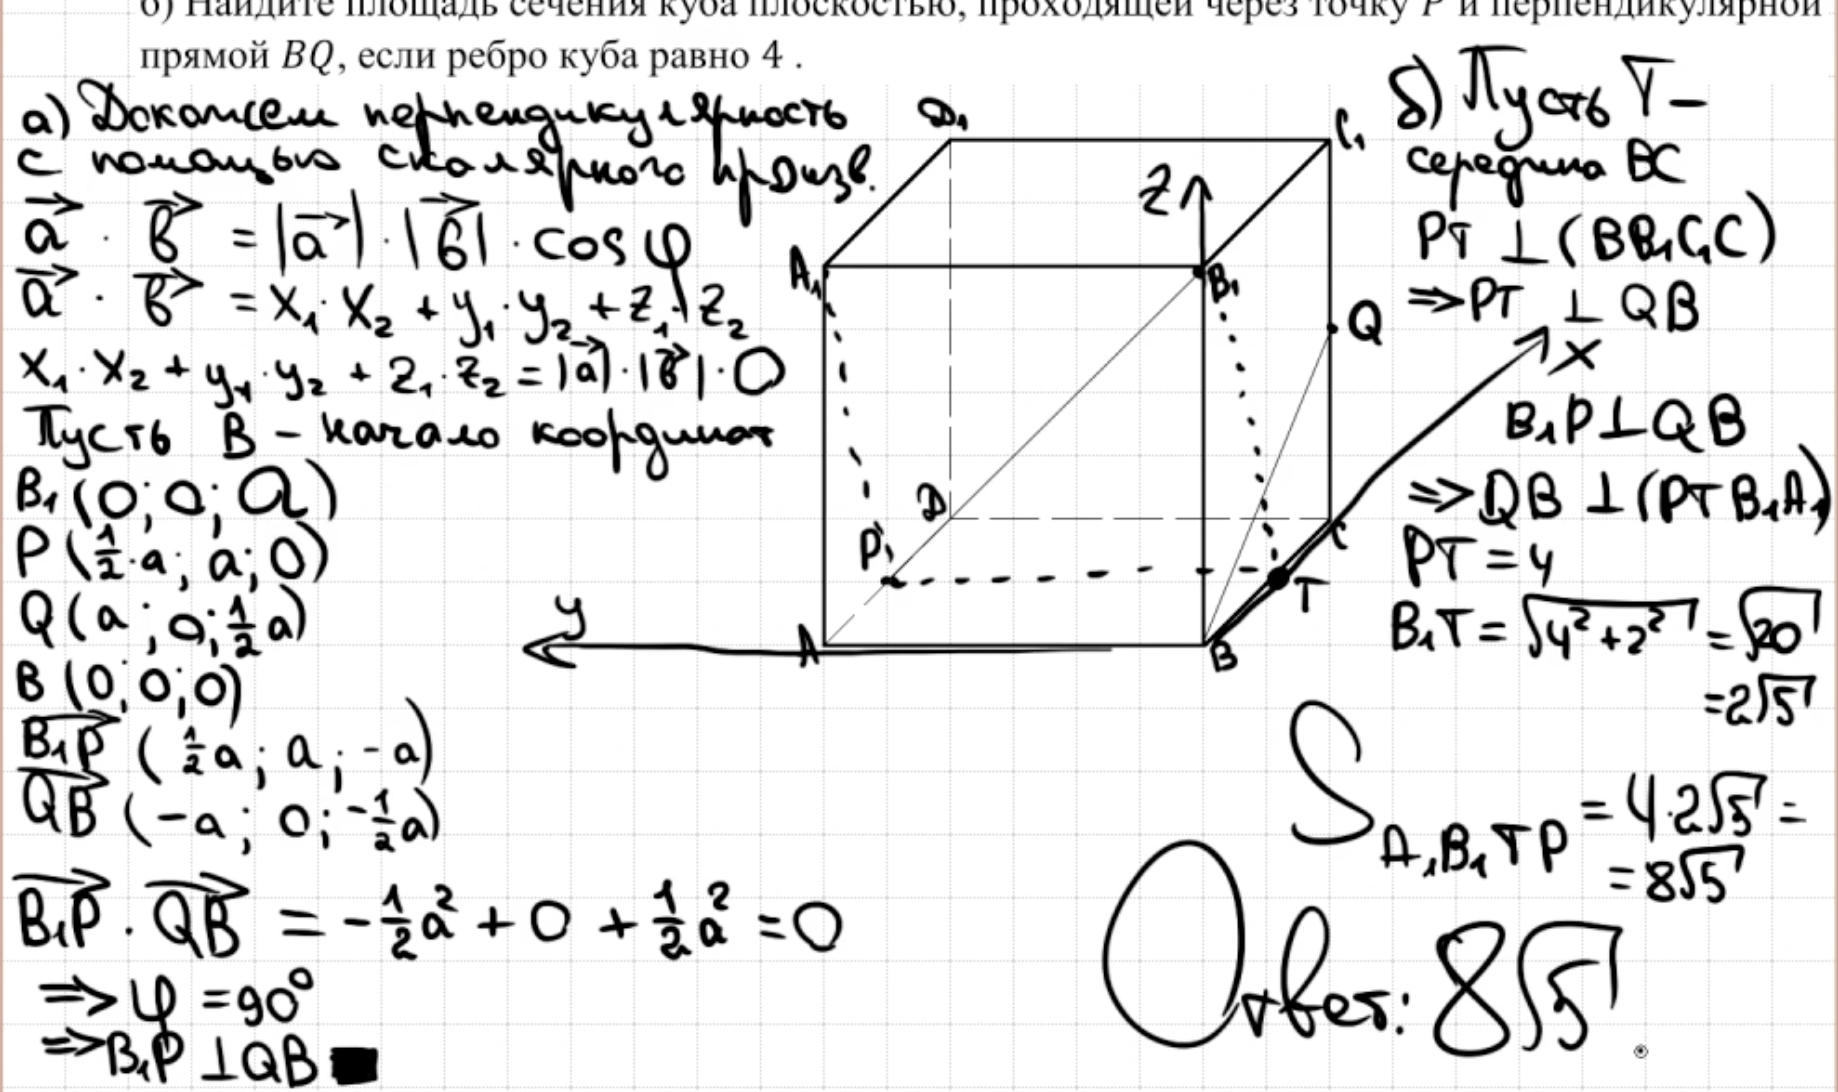 б) Найдите площадь сечения куба плоскостью, проходящей через точку P и перпендикулярной
прямой BQ, если ребро куба равно 4 .
а) Докажем перпендикулярность
с помощью скалярного произв.
a⃗ · b⃗ = |a⃗| · |b⃗| · cos φ
a⃗ · b⃗ = x₁ · x₂ + y₁ · y₂ + z₁ · z₂
x₁ · x₂ + y₁ · y₂ + z₁ · z₂ = |a⃗| · |b⃗| · 0
Пусть B – начало координат
B₁ (0; 0; a)
P (½ · a; a; 0)
Q (a; 0; ½a)
B (0; 0; 0)
B₁P⃗ (½a; a; -a)
QB⃗ (-a; 0; -½a)
B₁P⃗ · QB⃗ = -½a² + 0 + ½a² = 0
=> φ = 90°
=> B₁P ⊥ QB ■
D₁
C₁
Z
A₁
B₁
Q
X
D
P₁
C
T
y
A
B
б) Пусть T –
середина BC
PT ⊥ (BB₁C₁C)
=> PT ⊥ QB
B₁P ⊥ QB
=> QB ⊥ (PTB₁A₁)
PT = 4
B₁T = √(4² + 2²) = √20
= 2√5
S A₁B₁TP = 4 · 2√5 =
= 8√5
Ответ: 8√5